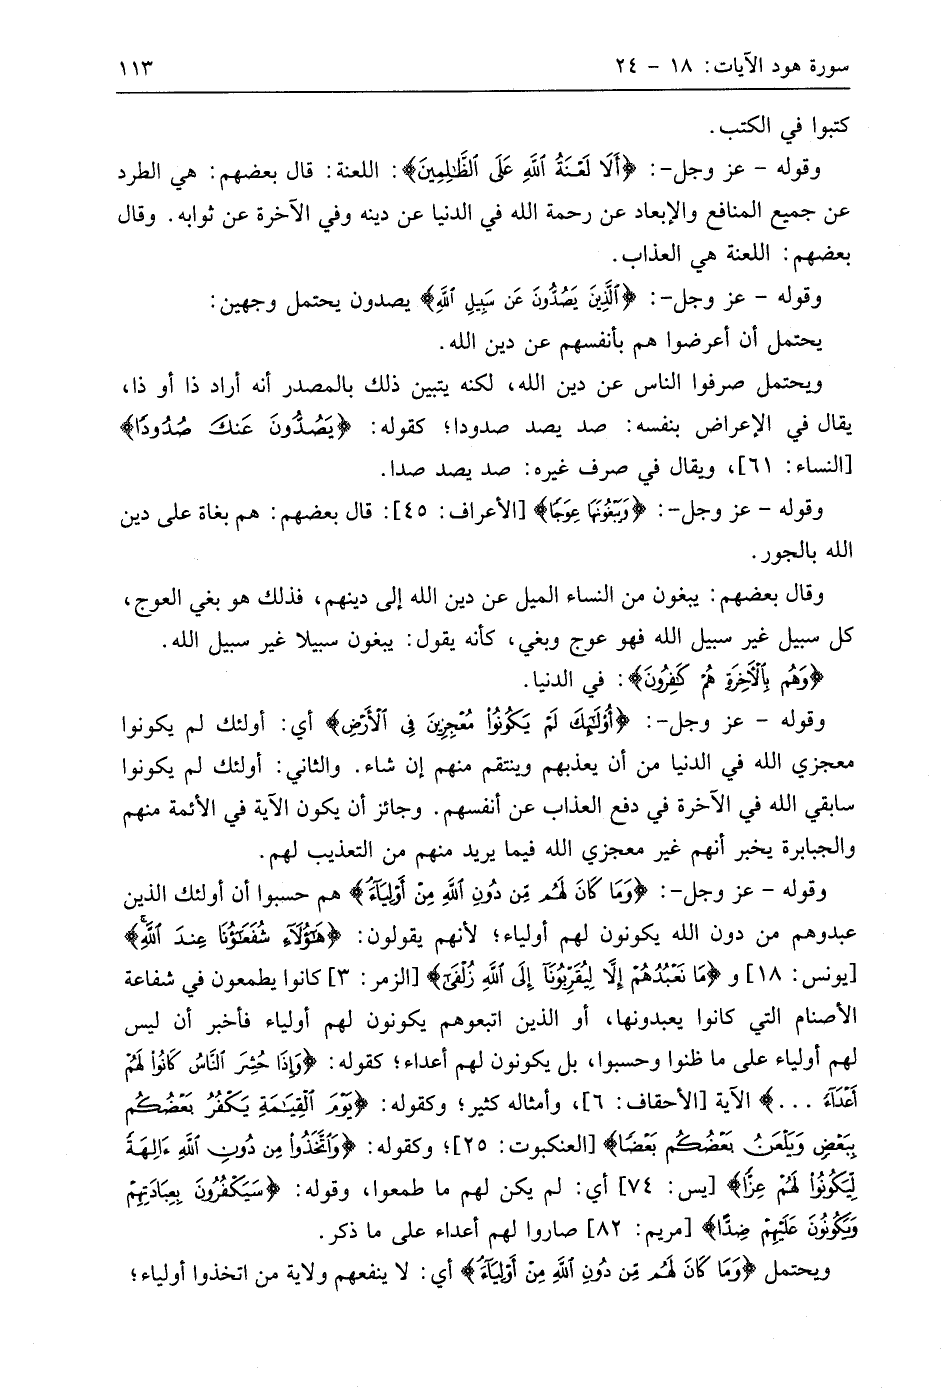 سورة هود الآيات: ١٨ - ٢٤ ١١٣
كتبوا في الكتب.
وقوله - عز وجل-: ﴿أَلَا لَعْنَةُ ٱللَّهِ عَلَى ٱلظَّٰلِمِينَ﴾: اللعنة: قال بعضهم: هي الطرد
عن جميع المنافع والإبعاد عن رحمة الله في الدنيا عن دينه وفي الآخرة عن ثوابه. وقال
بعضهم: اللعنة هي العذاب.
وقوله - عز وجل-: ﴿ٱلَّذِينَ يَصُدُّونَ عَن سَبِيلِ ٱللَّهِ﴾ يصدون يحتمل وجهين:
يحتمل أن أعرضوا هم بأنفسهم عن دين الله.
ويحتمل صرفوا الناس عن دين الله، لكنه يتبين ذلك بالمصدر أنه أراد ذا أو ذا،
يقال في الإعراض بنفسه: صد يصد صدودا؛ كقوله: ﴿يَصُدُّونَ عَنكَ صُدُودًا﴾
[النساء: ٦١]، ويقال في صرف غيره: صد يصد صدا.
وقوله - عز وجل-: ﴿وَيَبْغُونَهَا عِوَجًا﴾ [الأعراف: ٤٥]: قال بعضهم: هم بغاة على دين
الله بالجور.
وقال بعضهم: يبغون من النساء الميل عن دين الله إلى دينهم، فذلك هو بغي العوج،
كل سبيل غير سبيل الله فهو عوج وبغي، كأنه يقول: يبغون سبيلا غير سبيل الله.
﴿وَهُم بِٱلْأَخِرَةِ هُمْ كَٰفِرُونَ﴾: في الدنيا.
وقوله - عز وجل-: ﴿أُوْلَٰٓئِكَ لَمْ يَكُونُوا۟ مُعْجِزِينَ فِى ٱلْأَرْضِ﴾ أي: أولئك لم يكونوا
معجزي الله في الدنيا من أن يعذبهم وينتقم منهم إن شاء. والثاني: أولئك لم يكونوا
سابقي الله في الآخرة في دفع العذاب عن أنفسهم. وجائز أن يكون الآية في الأئمة منهم
والجبابرة يخبر أنهم غير معجزي الله فيما يريد منهم من التعذيب لهم.
وقوله - عز وجل-: ﴿وَمَا كَانَ لَهُم مِّن دُونِ ٱللَّهِ مِنْ أَوْلِيَآءَ﴾ هم حسبوا أن أولئك الذين
عبدوهم من دون الله يكونون لهم أولياء؛ لأنهم يقولون: ﴿هَٰٓؤُلَآءِ شُفَعَٰٓؤُنَا عِندَ ٱللَّهِۚ﴾
[يونس: ١٨] و ﴿مَا نَعْبُدُهُمْ إِلَّا لِيُقَرِّبُونَآ إِلَى ٱللَّهِ زُلْفَىٰٓ﴾ [الزمر: ٣] كانوا يطمعون في شفاعة
الأصنام التي كانوا يعبدونها، أو الذين اتبعوهم يكونون لهم أولياء فأخبر أن ليس
لهم أولياء على ما ظنوا وحسبوا، بل يكونون لهم أعداء؛ كقوله: ﴿وَإِذَا حُشِرَ ٱلنَّاسُ كَانُوا۟ لَهُمْ
أَعْدَآءً ...﴾ الآية [الأحقاف: ٦]، وأمثاله كثير؛ وكقوله: ﴿يَوْمَ ٱلْقِيَٰمَةِ يَكْفُرُ بَعْضُكُم
بِبَعْضٍ وَيَلْعَنُ بَعْضُكُم بَعْضًا﴾ [العنكبوت: ٢٥]؛ وكقوله: ﴿وَٱتَّخَذُوا۟ مِن دُونِ ٱللَّهِ ءَالِهَةً
لِّيَكُونُوا۟ لَهُمْ عِزًّا﴾ [يس: ٧٤] أي: لم يكن لهم ما طمعوا، وقوله: ﴿سَيَكْفُرُونَ بِعِبَادَتِهِمْ
وَيَكُونُونَ عَلَيْهِمْ ضِدًّا﴾ [مريم: ٨٢] صاروا لهم أعداء على ما ذكر.
ويحتمل ﴿وَمَا كَانَ لَهُم مِّن دُونِ ٱللَّهِ مِنْ أَوْلِيَآءَ﴾ أي: لا ينفعهم ولاية من اتخذوا أولياء؛